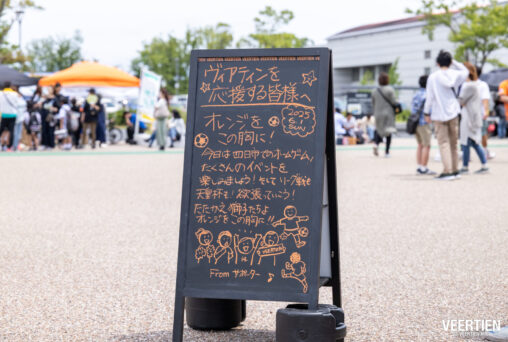 ヴィアティンを
応援する皆様へ
2025
SUN
オレンジを
この胸に！
今日は四日市でのホームゲーム！
たくさんのイベントを
楽しみましょう！そしてリーグ戦も
天皇杯も！欲張っていこう！
たたかえ獅子たちよ
オレンジをこの胸に！
VEERTIEN
From サポーター♪
VEERTIEN